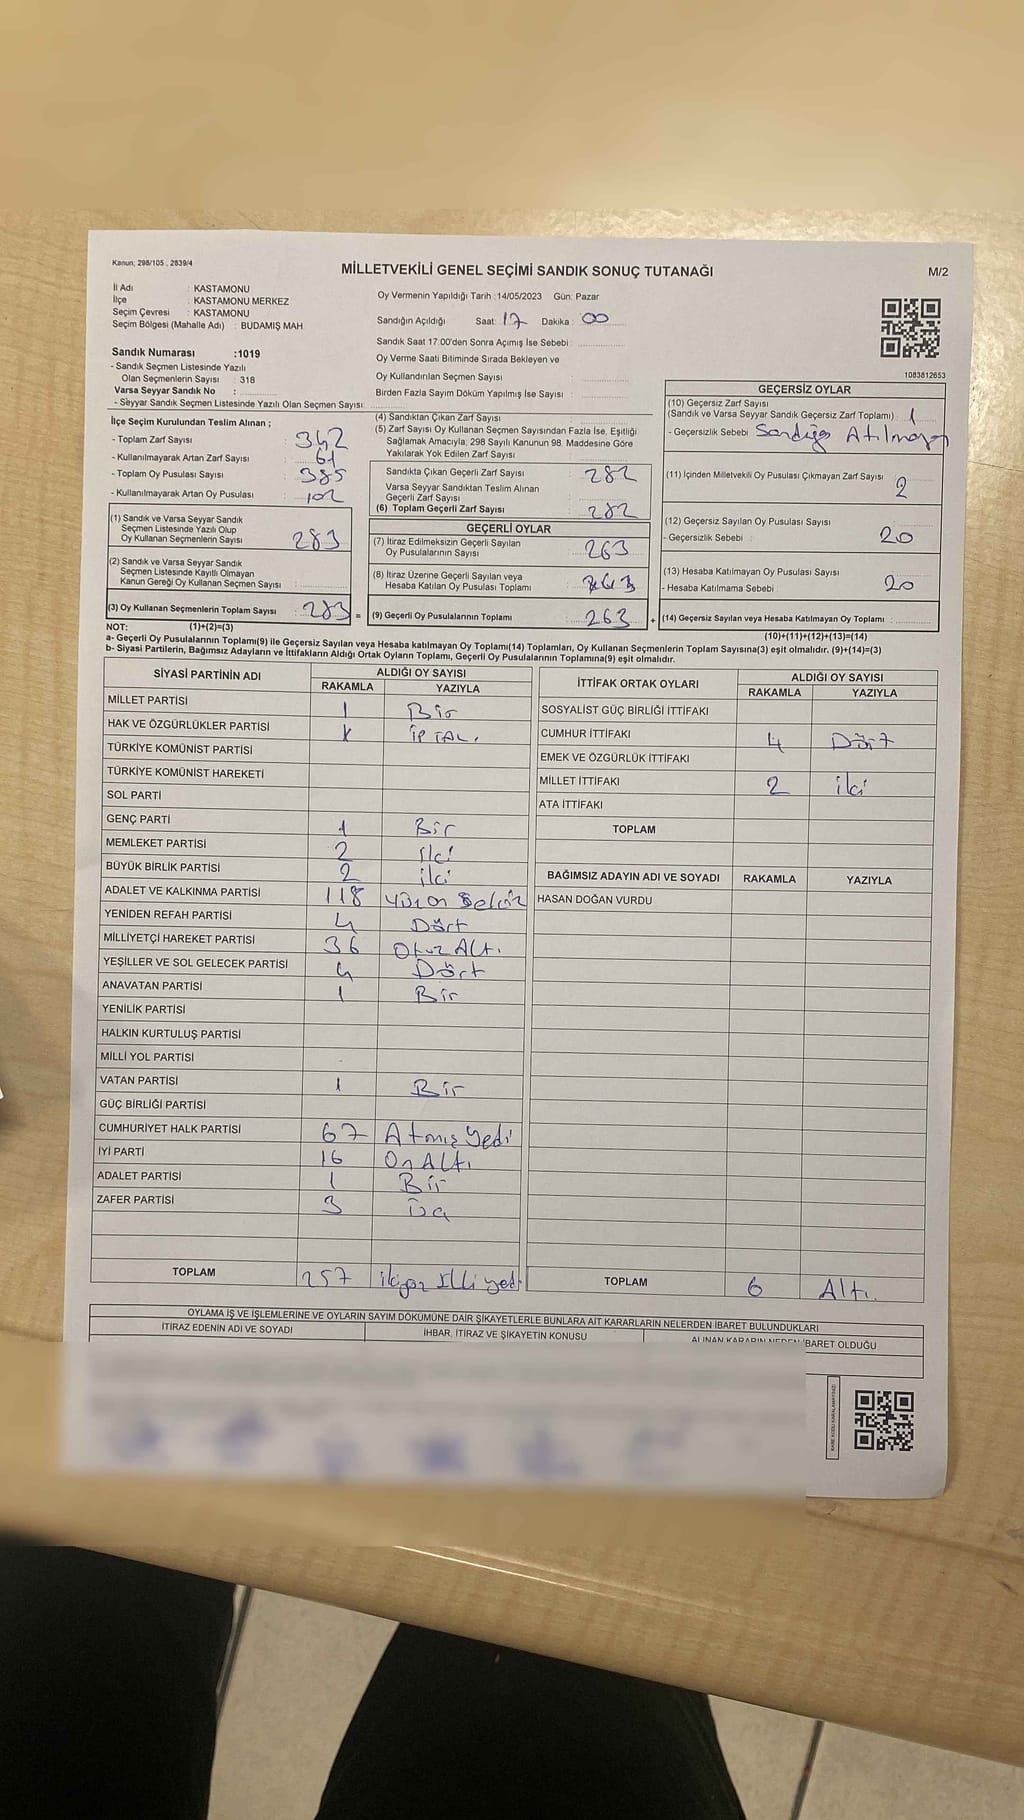 Kanun; 298/105 , 2839/4
MİLLETVEKİLİ GENEL SEÇİMİ SANDIK SONUÇ TUTANAĞI
M/2
İl Adı : KASTAMONU
İlçe : KASTAMONU MERKEZ
Seçim Çevresi : KASTAMONU
Seçim Bölgesi (Mahalle Adı) : BUDAMIŞ MAH
Oy Vermenin Yapıldığı Tarih :14/05/2023 Gün: Pazar
Sandığın Açıldığı Saat: 17 Dakika : 00
Sandık Saat 17:00'den Sonra Açımış İse Sebebi :
Oy Verme Saati Bitiminde Sırada Bekleyen ve
Oy Kullandırılan Seçmen Sayısı :
Birden Fazla Sayım Döküm Yapılmış İse Sayısı :
1083812653
Sandık Numarası :1019
- Sandık Seçmen Listesinde Yazılı
Olan Seçmenlerin Sayısı : 318
Varsa Seyyar Sandık No :
- Seyyar Sandık Seçmen Listesinde Yazılı Olan Seçmen Sayısı:
İlçe Seçim Kurulundan Teslim Alınan ;
- Toplam Zarf Sayısı : 342
- Kullanılmayarak Artan Zarf Sayısı : 61
- Toplam Oy Pusulası Sayısı : 385
- Kullanılmayarak Artan Oy Pusulası : 102
(1) Sandık ve Varsa Seyyar Sandık
Seçmen Listesinde Yazılı Olup
Oy Kullanan Seçmenlerin Sayısı : 283
(2) Sandık ve Varsa Seyyar Sandık
Seçmen Listesinde Kayıtlı Olmayan
Kanun Gereği Oy Kullanan Seçmen Sayısı :
(3) Oy Kullanan Seçmenlerin Toplam Sayısı : 283 =
(4) Sandıktan Çıkan Zarf Sayısı :
(5) Zarf Sayısı Oy Kullanan Seçmen Sayısından Fazla İse, Eşitliği
Sağlamak Amacıyla; 298 Sayılı Kanunun 98. Maddesine Göre
Yakılarak Yok Edilen Zarf Sayısı :
Sandıkta Çıkan Geçerli Zarf Sayısı : 282
Varsa Seyyar Sandıktan Teslim Alınan
Geçerli Zarf Sayısı :
(6) Toplam Geçerli Zarf Sayısı : 282
GEÇERLİ OYLAR
(7) İtiraz Edilmeksizin Geçerli Sayılan
Oy Pusulalarının Sayısı : 263
(8) İtiraz Üzerine Geçerli Sayılan veya
Hesaba Katılan Oy Pusulası Toplamı :
(9) Geçerli Oy Pusulalarının Toplamı : 263 +
GEÇERSİZ OYLAR
(10) Geçersiz Zarf Sayısı
(Sandık ve Varsa Seyyar Sandık Geçersiz Zarf Toplamı) : 1
- Geçersizlik Sebebi : Sandığa
(11) İçinden Milletvekili Oy Pusulası Çıkmayan Zarf Sayısı : 2
(12) Geçersiz Sayılan Oy Pusulası Sayısı :
- Geçersizlik Sebebi : 20
(13) Hesaba Katılmayan Oy Pusulası Sayısı :
- Hesaba Katılmama Sebebi : 20
(14) Geçersiz Sayılan veya Hesaba Katılmayan Oy Pusulası Toplamı :
NOT: (1)+(2)=(3)
(10)+(11)+(12)+(13)=(14)
a- Geçerli Oy Pusulalarının Toplamı(9) ile Geçersiz Sayılan veya Hesaba katılmayan Oy Toplamı(14) Toplamları, Oy Kullanan Seçmenlerin Toplam Sayısına(3) eşit olmalıdır. (9)+(14)=(3)
b- Siyasi Partilerin, Bağımsız Adayların ve İttifakların Aldığı Ortak Oyların Toplamı, Geçerli Oy Pusulalarının Toplamına(9) eşit olmalıdır.
SİYASİ PARTİNİN ADI ALDIĞI OY SAYISI
RAKAMLA YAZIYLA
MİLLET PARTİSİ 1 Bir
HAK VE ÖZGÜRLÜKLER PARTİSİ X İPTAL.
TÜRKİYE KOMÜNİST PARTİSİ
TÜRKİYE KOMÜNİST HAREKETİ
SOL PARTİ
GENÇ PARTİ 1 Bir
MEMLEKET PARTİSİ 2 İki
BÜYÜK BİRLİK PARTİSİ 2 İki
ADALET VE KALKINMA PARTİSİ 118 Yüzon Sekiz
YENİDEN REFAH PARTİSİ 4 Dört
MİLLİYETÇİ HAREKET PARTİSİ 36 Otuz Altı
YEŞİLLER VE SOL GELECEK PARTİSİ 4 Dört
ANAVATAN PARTİSİ 1 Bir
YENİLİK PARTİSİ
HALKIN KURTULUŞ PARTİSİ
MİLLİ YOL PARTİSİ
VATAN PARTİSİ 1 Bir
GÜÇ BİRLİĞİ PARTİSİ
CUMHURİYET HALK PARTİSİ 67 Atmış Yedi
İYİ PARTİ 16 On Altı
ADALET PARTİSİ 1 Bir
ZAFER PARTİSİ 3 Üç
TOPLAM 257 ikiyüz Elli yedi
İTTİFAK ORTAK OYLARI ALDIĞI OY SAYISI
RAKAMLA YAZIYLA
SOSYALİST GÜÇ BİRLİĞİ İTTİFAKI
CUMHUR İTTİFAKI 4 Dört
EMEK VE ÖZGÜRLÜK İTTİFAKI
MİLLET İTTİFAKI 2 iki
ATA İTTİFAKI
TOPLAM
BAĞIMSIZ ADAYIN ADI VE SOYADI RAKAMLA YAZIYLA
HASAN DOĞAN VURDU
TOPLAM 6 Altı
OYLAMA İŞ VE İŞLEMLERİNE VE OYLARIN SAYIM DÖKÜMÜNE DAİR ŞİKAYETLERLE BUNLARA AİT KARARLARIN NELERDEN İBARET BULUNDUKLARI
İTİRAZ EDENİN ADI VE SOYADI İHBAR, İTİRAZ VE ŞİKAYETİN KONUSU ALINAN KARARIN NEDEN İBARET OLDUĞU